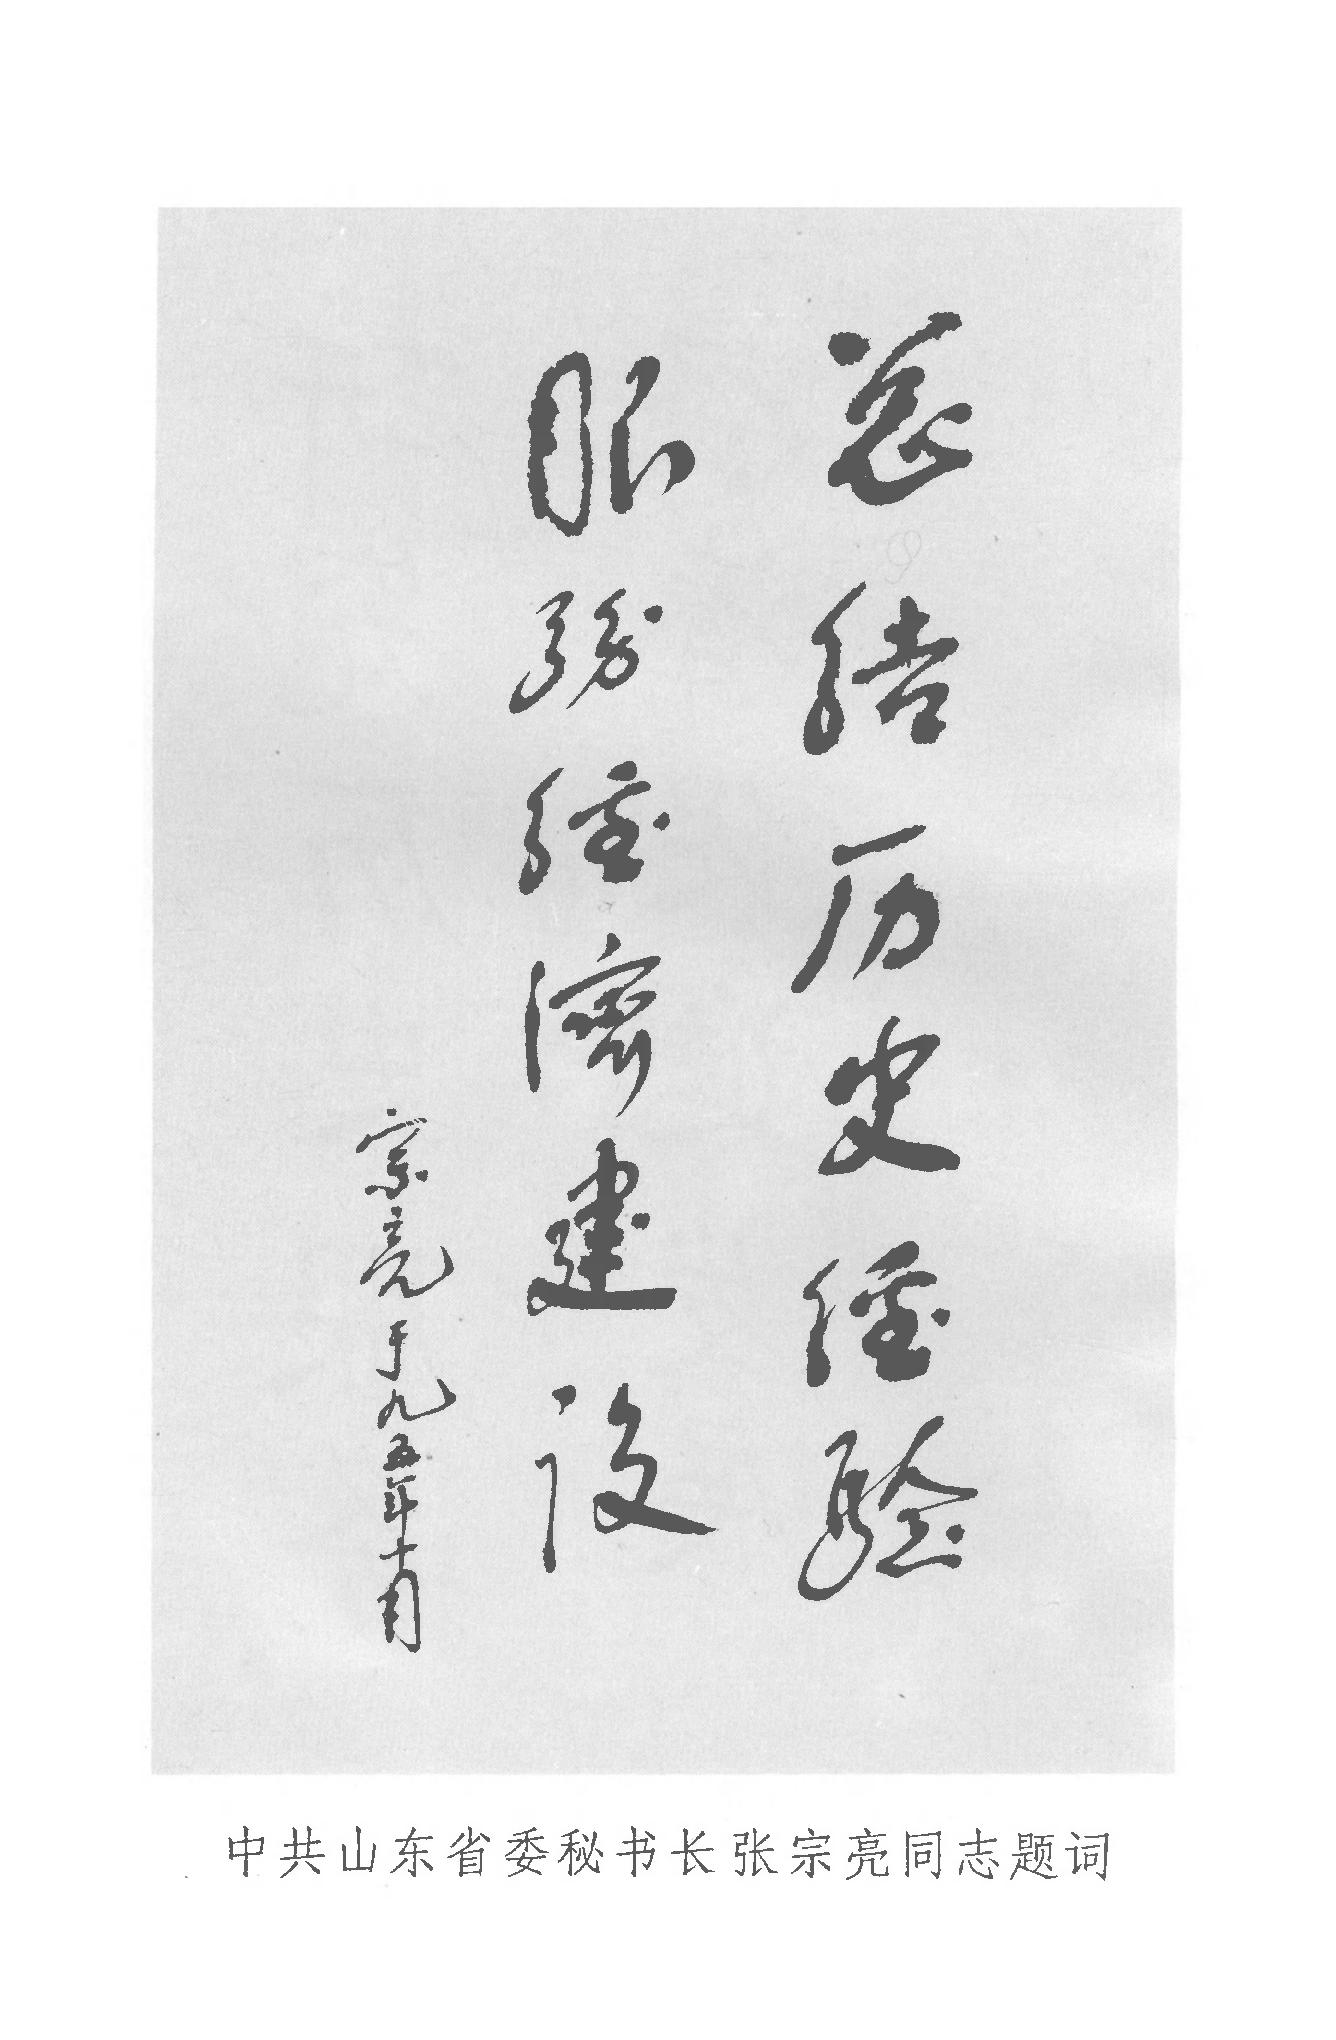 总结历史经验
服务经济建设
宗亮于九五年十月
中共山东省委秘书长张宗亮同志题词